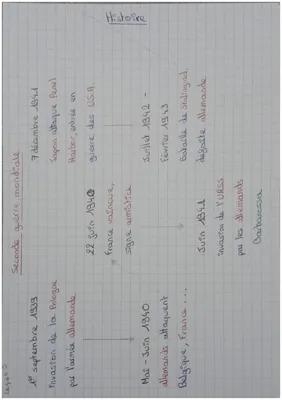 Histoire
Seconde guerre mondiale
1er septembre 1939
Invasion de la Pologne
par l'armée allemande
Mai - Juin 1940
allemands attaquent
Belgique, France ...
22 Juin 1940
France vaincue,
signe armistice
Juin 1941
invasion de l'URSS
par les allemands
Barbarossa
7 décembre 1941
Japon attaque Pearl
Harbor, entrée en
guerre des U.S.A.
Juillet 1942 -
Février 1943
Bataille de Stalingrad,
défaite allemande.